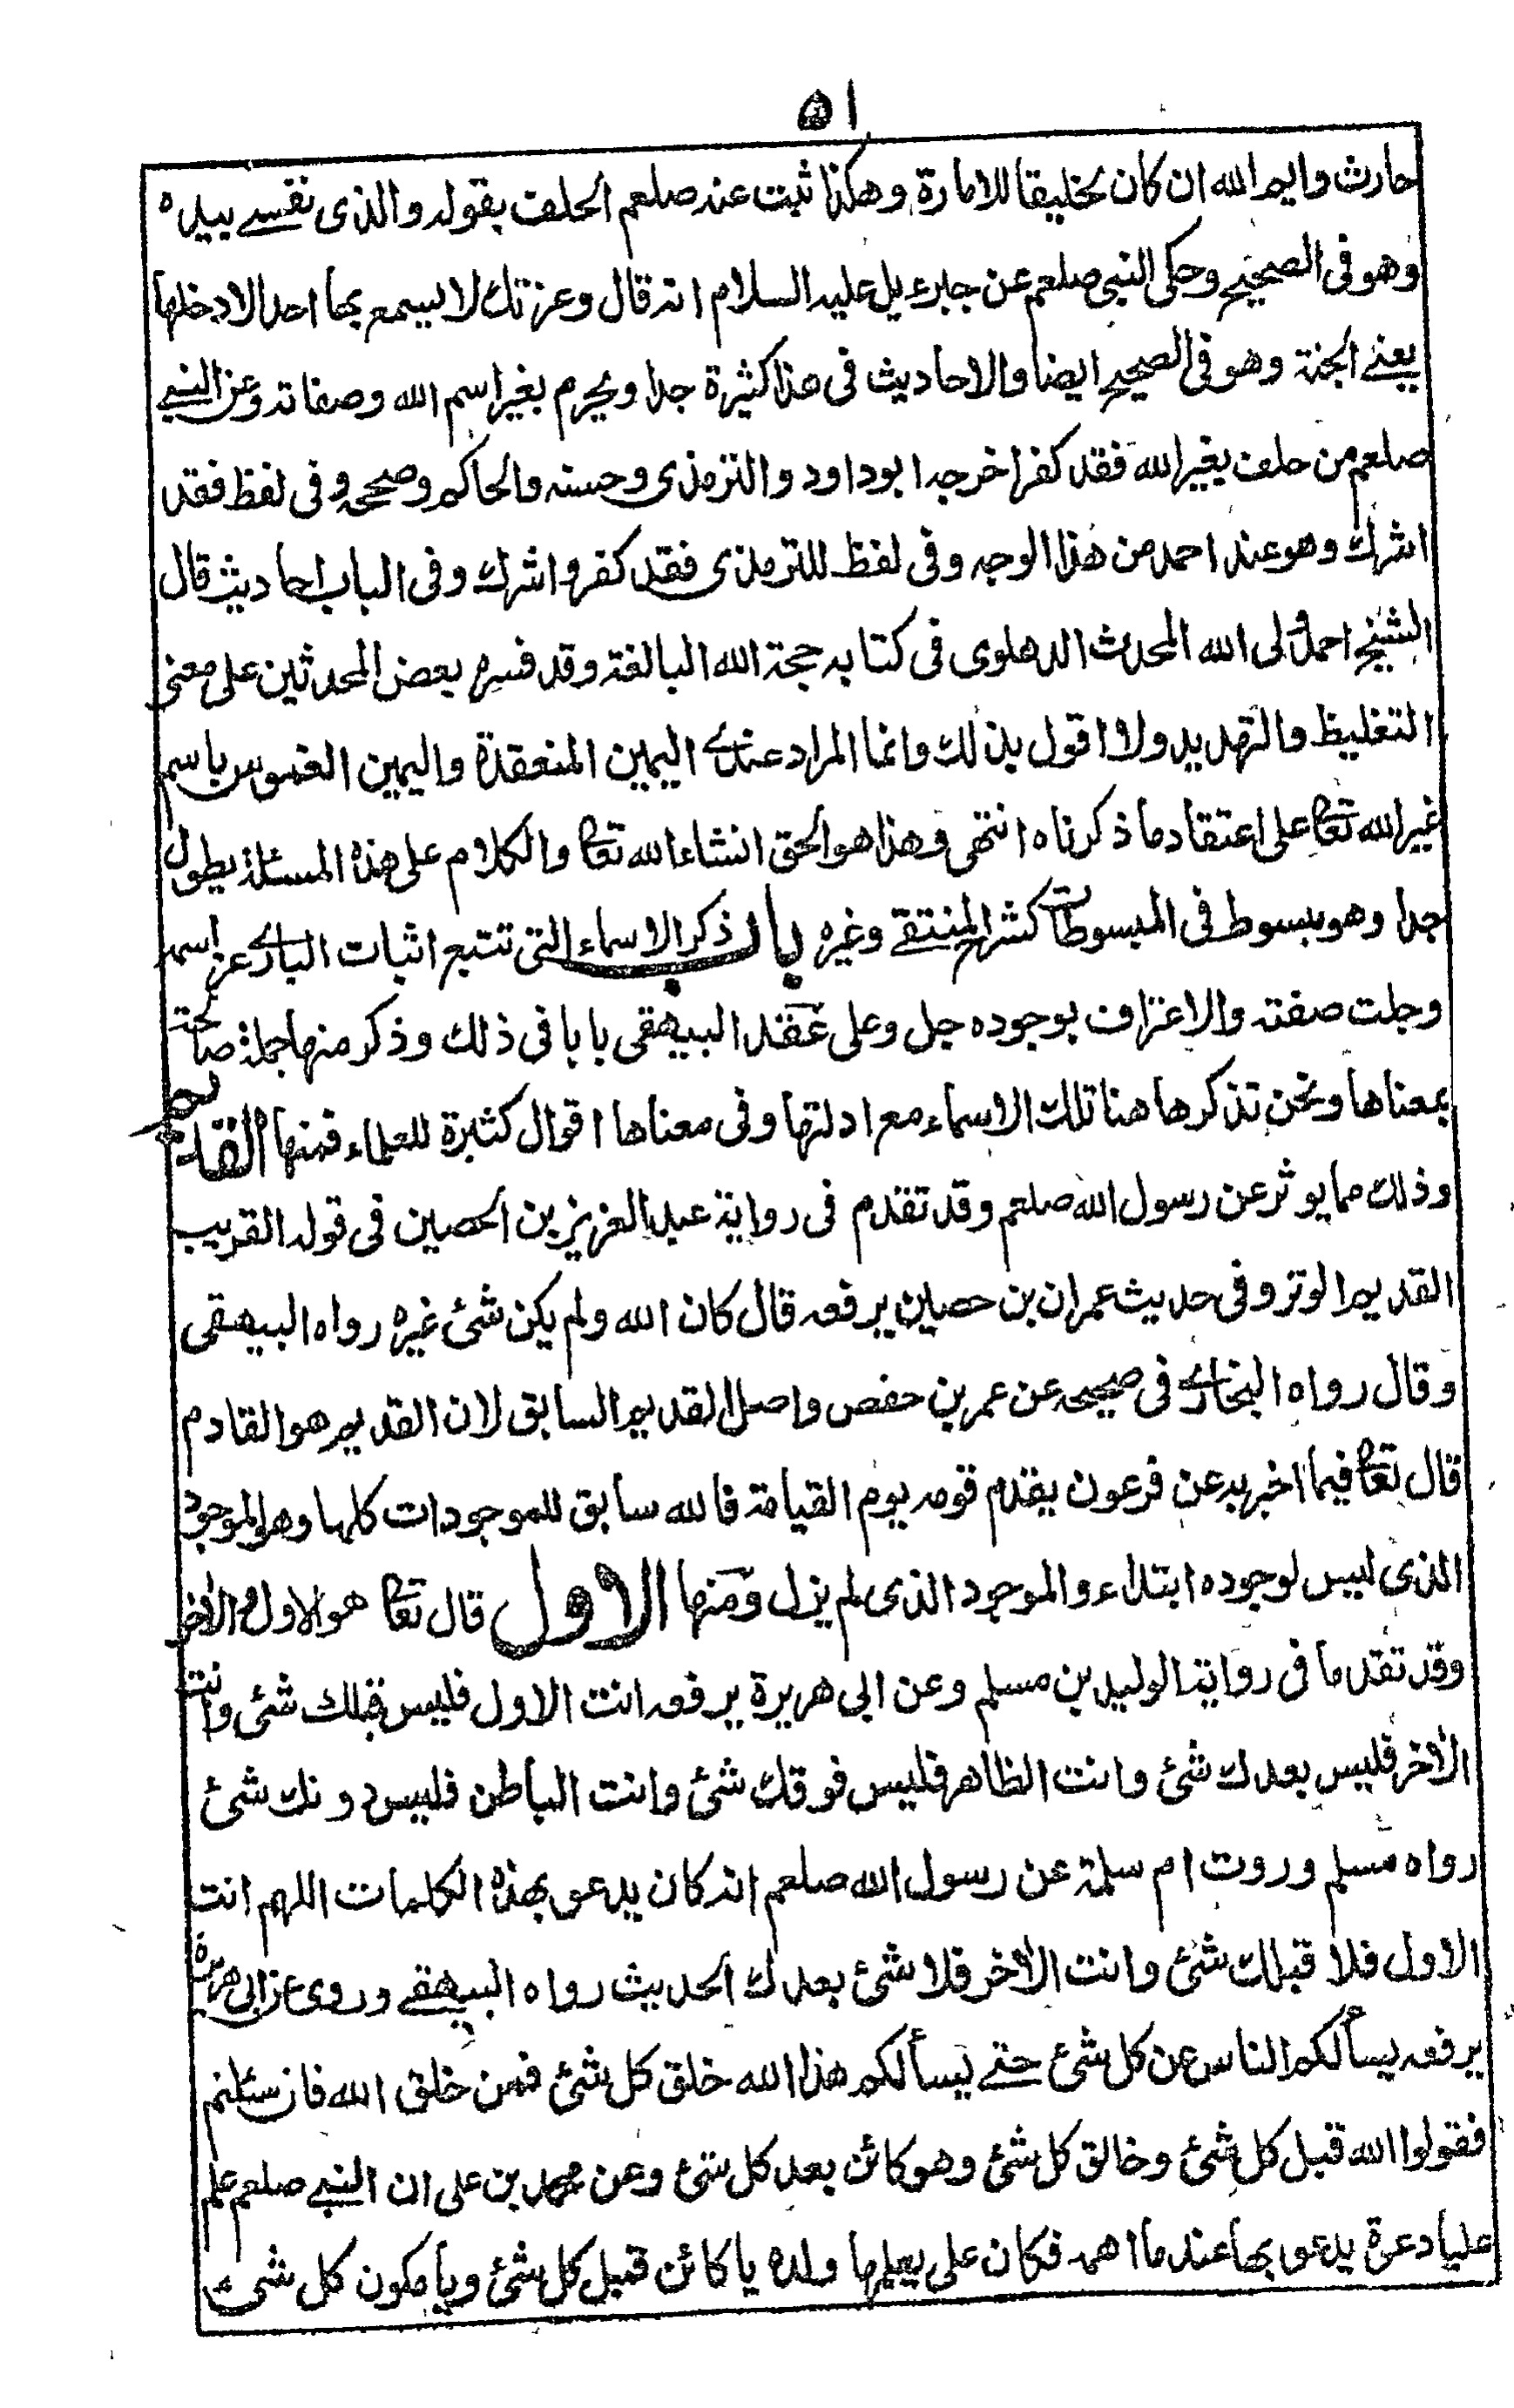 ٥١
حارث وايم الله ان كان لخليقا للامارة وهكذا ثبت عنه صلعم الحلف بقوله والذى نفسے بيده
وهو فى الصحيح وحكى النبى صلعم عن جبرءيل عليه السلام انه قال وعزتك لا يسمع بها احد الا دخلها
يعنے الجنة وهو فى الصحيح ايضا والاحاديث فى هذا كثيرة جدا ويحرم بغير اسم الله وصفاته وعن النبے
صلعم من حلف بغير الله فقد كفر اخرجه ابو داود والترمذى وحسنه والحاكم وصححه وفى لفظ فقد
اشرك وهو عند احمد من هذا الوجه وفى لفظ للترمذى فقد كفر واشرك وفى الباب احاديث قال
الشيخ احمد ولى الله المحدث الدهلوى فى كتابه حجة الله البالغة وقد فسره بعض المحدثين على معنى
التغليظ والتهديد ولا اقول بذلك وانما المراد عندے اليمين المنعقدة واليمين الغموس باسم
غير الله تعالى على اعتقاد ما ذكرناه انتهى وهذا هو الحق انشاء الله تعالى والكلام على هذه المسئلة يطول
جدا وهو مبسوط فى المبسوطات كشرح المنتقے وغيره باب ذكر الاسماء التى تتبع اثبات البارے عز اسمه
وجلت صفته والاعتراف بوجوده جل وعلى عقد البيهقى بابا فى ذلك وذكر منها جملة صالحة
بمعناها ونحن نذكرها هنا تلك الاسماء مع ادلتها وفى معناها اقوال كثيرة للعلماء فمنها القديم
وذلك مما يوثر عن رسول الله صلعم وقد تقدم فى رواية عبد العزيز بن الحصين فى قوله القريب
القديم الوتر وفى حديث عمران بن حصين يرفعه قال كان الله ولم يكن شئ غيره رواه البيهقى
وقال رواه البخارے فى صحيحه عن عمر بن حفص واصل القديم السابق لان القديم هو القادم
قال تعالى فيما اخبر به عن فرعون يقدم قومه يوم القيامة فالله سابق للموجودات كلها وهو الموجود
الذى ليس لوجوده ابتداء والموجود الذى لم يزل ومنها الاول قال تعالى هو الاول والاٰخر
وقد تقدما فى رواية الوليد بن مسلم وعن ابى هريرة يرفعه انت الاول فليس قبلك شئ وانت
الاٰخر فليس بعدك شئ وانت الظاهر فليس فوقك شئ وانت الباطن فليس دونك شئ
رواه مسلم وروت ام سلمة عن رسول الله صلعم انه كان يدعو بهذه الكلمات اللهم انت
الاول فلا قبلك شئ وانت الاٰخر فلا شئ بعدك الحديث رواه البيهقے وروى عن ابى هريرة
يرفعه يسألكم الناس عن كل شئ حتے يسألكم هذا الله خلق كل شئ فمن خلق الله فان سئلتم
فقولوا الله قبل كل شئ وخالق كل شئ وهو كائن بعد كل شئ وعن محمد بن على ان النبے صلعم علم
عليا دعوة يدعو بها عند ما اهمه فكان على يعلمها ولده يا كائن قبل كل شئ ويا مكون كل شئ